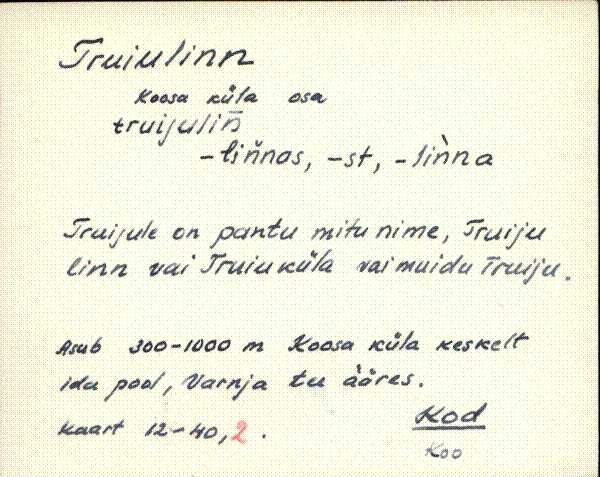 Truiulinn
Koosa küla osa
truijulin̄
-lin̆nas, -st, -lìnna
Truijule on pantu mitu nime, Truiju
linn vai Truiuküla vai muidu Truiju.
Asub 300-1000 m Koosa küla keskelt
ida pool, Varnja tu ääres.
Kaart 12-40,2.
Kod
Koo